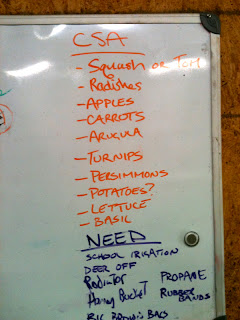 CSA
- Squash or Tom
- Radishes
- APPLES
- CARROTS
- ARUGULA
- TURNIPS
- PERSIMMONS
- POTATOES?
- LETTUCE
- BASIL
NEED
SCHOOL IRIGATION
DEER OFF
Radiator PROPANE
Honey Bucket RUBBER BANDS
BIG BROWN BAGS